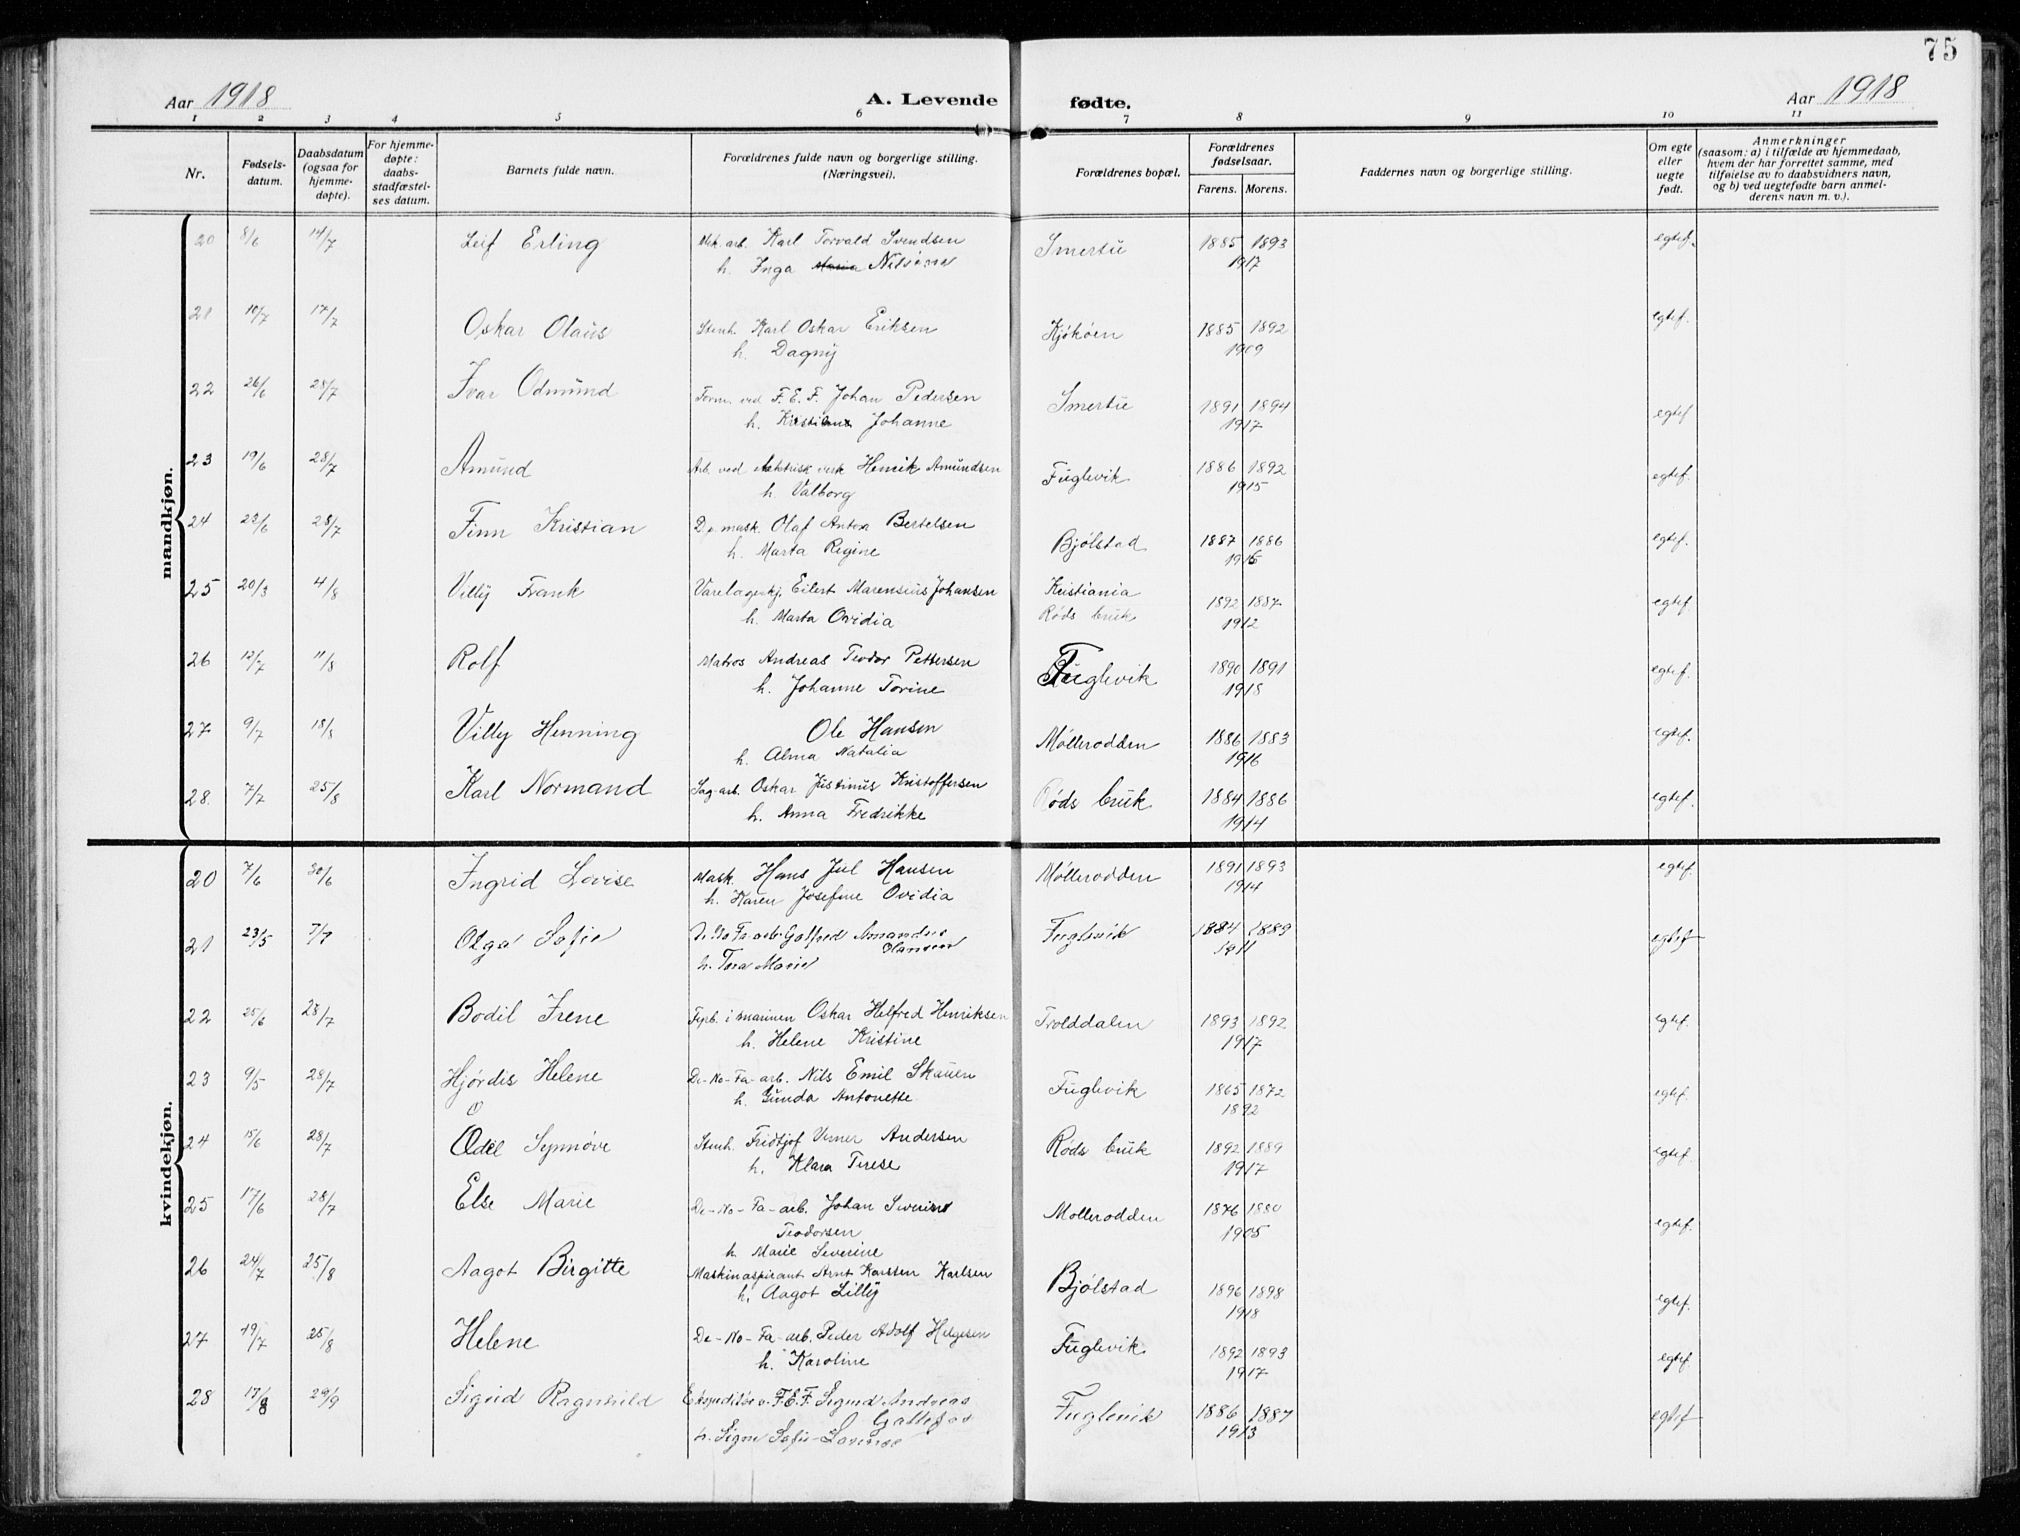 75
Aar 1918 A. Levende fødte. Aar 1918
1 2 3 4 5 6 7 8 9 10 11
Nr.
Fødsels-
datum.
Daabsdatum
(ogsaa for
hjemme-
døpte).
For hjemme-
døpte:
daabs-
stadfæstel-
ses datum.
Barnets fulde navn.
Forældrenes fulde navn og borgerlige stilling.
(Næringsvei).
Forældrenes bopæl.
Forældrenes
fødselsaar.
Farens. Morens.
Faddernes navn og borgerlige stilling.
Om egte
eller
uegte
født.
Anmerkninger
(saasom: a) i tilfælde av hjemmedaab,
hvem der har forrettet samme, med
tilføielse av to daabsvidners navn,
og b) ved uegtefødte barn anmel-
derens navn m. v.).
mandkjøn.
20 8/6 14/7 Leif Erling Mek. arb. Karl Torvald Svendsen Smertu 1885 1893 egtef.
h. Inga Maria 1917
21 10/7 17/7 Oskar Olaus Stenh. Karl Oskar Eriksen Kjøkøen 1885 1892 egtef.
h. Dagny 1909
22 26/6 28/7 Ivar Odmund ved F. E. F. Johan Pedersen Smertu 1891 1894 egtef
h. Johanne 1917
23 19/6 28/7 Amund Arb. ved elektrisk verk Henrik Amundsen Fuglevik 1886 1892 egtef.
h. Valborg 1915
24 23/6 28/7 Finn Kristian Olaf Anton Bertelsen Bjølstad 1887 1886 egtef.
h. Marta Regine
25 20/3 4/8 Villy Frank Varelagerskj. Eilert Marensius Johansen Kristiania
h. Marta Ovidia Røds bruk 1892 1887 egtef.
1912
26 12/7 11/8 Rolf Matros Andreas Teodor Pettersen Fuglevik 1890 1891 egtef.
h. Johanne Torine 1918
27 9/7 18/8 Villy Henning Ole Hansen Møllerodden 1886 1883 egtef.
h. Alma Natalia 1916
28. 7/7 25/8 Karl Normand Sag-arb. Oskar Justinus Kristoffersen Røds bruk 1884 1886 egtef.
h. Anna Fredrikke 1914
kvindekjøn.
20 7/6 30/6 Ingrid Lovise Mask. Hans Jul Hansen Møllerodden 1891 1893 egtef.
h. Karen Josefine Ovidia 1914
21 23/5 7/7 Olga Sofie De No Fa arb Golfred Amandus Fuglevik 1884 1889 egtef
Hansen
h. Tora Marie 1911
22 25/6 28/7 Bodil Irene i marinen Oskar Helfred Henriksen Trolddalen 1893 1892 egtef.
h. Helene Kristine 1917
23 9/5 28/7 Hjørdis Helene De-No-Fa-arb. Nils Emil Skauen Fuglevik 1865 1872 egtef.
h. Gunda Antonette. 1892
24 15/6 28/7 Odel Synnøve Stenh. Fridtjof Verner Andersen Røds bruk 1892 1889 egtef.
h. Klara Terese 1917
25 17/6 28/7 Else Marie De-No-Fa-arb. Johan Severin Møllerodden 1876 1880 egtef.
Teodorsen 1905
h. Marie Severine
26 24/7 25/8 Aagot Birgitte Maskinaspirant Arnt Karsten Karlsen Bjølstad 1896 1898 egtef.
h. Aagot Lilly 1918
27 19/7 25/8 Helene De-No-Fa-arb. Peder Adolf Helgesen Fuglevik 1892 1893 egtef.
h. Karoline 1917
28 17/8 29/9 Sigrid Ragnhild Ekspeditør v. F.E.F. Sigurd Andreas Fuglevik 1886 1887 egtef
h. Signe Sofie 1913